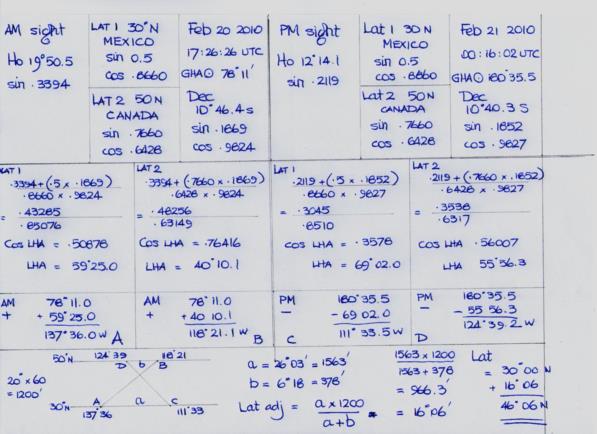 AM sight
Ho 19°50.5
sin .3394
LAT 1 30°N
MEXICO
sin 0.5
cos .8660
LAT 2 50N
CANADA
sin .7660
cos .6428
Feb 20 2010
17:26:26 UTC
GHA☉ 78°11'
Dec
10°46.4 s
sin .1869
cos .9824
PM sight
Ho 12°14.1
sin .2119
Lat 1 30N
MEXICO
sin 0.5
cos .8660
Lat 2 50N
CANADA
sin .7660
cos .6428
Feb 21 2010
00:16:02 UTC
GHA☉ 180°35.5
Dec
10°40.3 S
sin .1852
cos .9827
LAT 1
.3394+(.5 x .1869)
.8660 x .9824
= .43285
.85076
Cos LHA = .50878
LHA = 59°25.0
LAT 2
.3394+(.7660 x .1869)
.6428 x .9824
= .48256
.63149
Cos LHA = .76416
LHA = 40°10.1
LAT 1
.2119+(.5 x .1852)
.8660 x .9827
= .3045
.8510
cos LHA = .3578
LHA = 69°02.0
LAT 2
.2119+(.7660 x .1852)
.6428 x .9827
= .3538
.6317
cos LHA .56007
LHA 55°56.3
AM 78°11.0
+ + 59°25.0
137°36.0W A
AM 78°11.0
+ + 40 10.1
118°21.1W B
PM 180°35.5
− − 69 02.0
C 111° 33.5W
PM 180°35.5
− − 55 56.3
D 124°39.2W
20° x 60
= 1200'
50°N 124°39 118°21
D b B
30°N A a C
137°36 111°33
a = 26°03' = 1563'
b = 6°18 = 378'
Lat adj = a x 1200
a + b
1563 x 1200
1563 + 378
= 966.3'
= 16°06'
Lat
= 30°00 N
+ 16°06
46°06 N